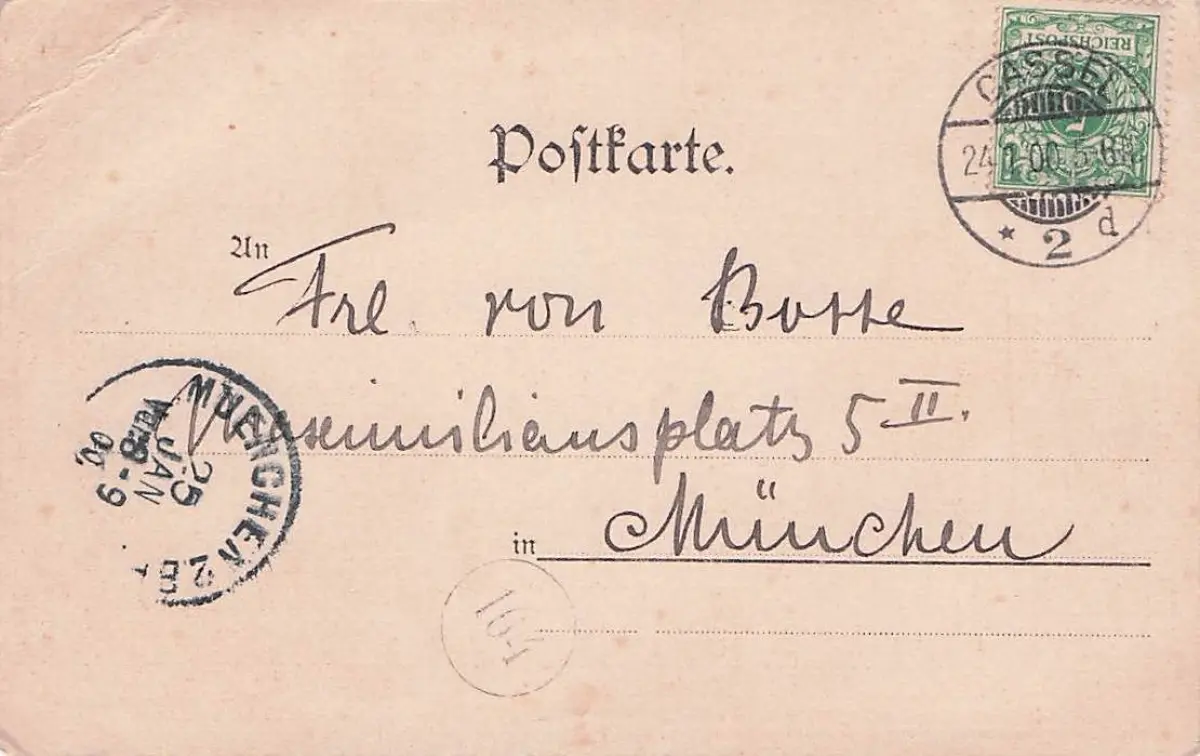 REICHSPOST
CASSEL
24.1.00.5-6N
* 2 d
Postkarte.
An Frl. von Bosse
Maximiliansplatz 5 II.
in München
MUENCHEN 2 B
25
JAN
VORM
8-9
00
164